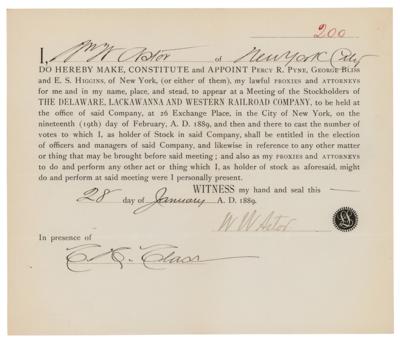 200
I, Wm W Astor of New York City
DO HEREBY MAKE, CONSTITUTE and APPOINT PERCY R. PYNE, GEORGE BLISS
and E. S. HIGGINS, of New York, (or either of them), my lawful PROXIES and ATTORNEYS
for me and in my name, place, and stead, to appear at a Meeting of the Stockholders
of THE DELAWARE, LACKAWANNA AND WESTERN RAILROAD COMPANY, to be held
at the office of said Company, at 26 Exchange Place, in the City of New York, on the
nineteenth (19th) day of February, A. D. 1889, and then and there to cast the number of
votes to which I, as holder of Stock in said Company, shall be entitled in the election
of officers and managers of said Company, and likewise in reference to any other matter
or thing that may be brought before said meeting; and also as my PROXIES and ATTORNEYS
to do and perform any other act or thing which I, as holder of stock as aforesaid, might
do and perform at said meeting were I personally present.
WITNESS my hand and seal this
28 day of January A. D. 1889.
W W Astor
In presence of